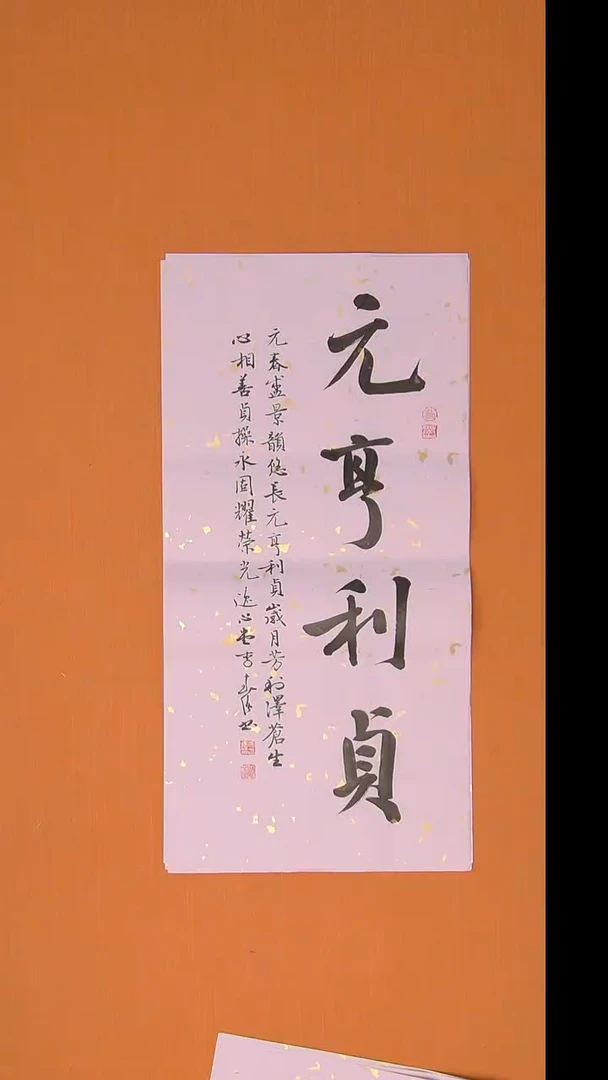 元亨利貞
元春盛景韻悠長元亨利貞歲月芳利澤蒼生
心相善貞操永固耀榮光逸心堂書